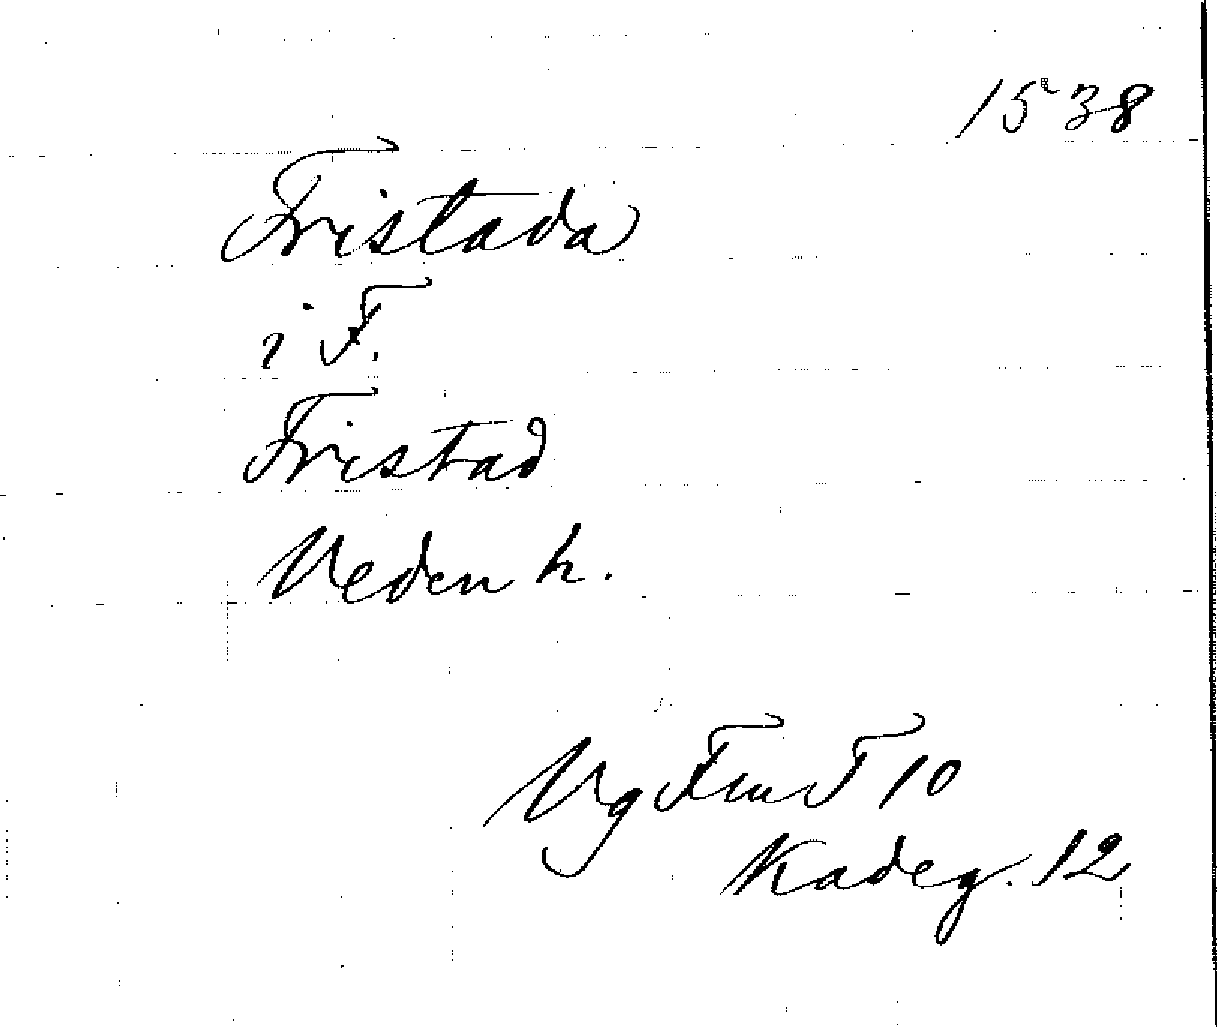 1538
Fristada
i F.
Fristad
Veden h.
Vg Fru F 10
Kadeg. 12